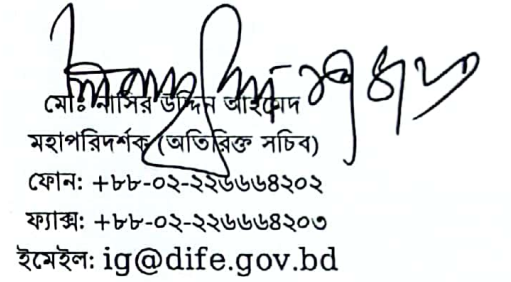 মোঃ নাসির উদ্দিন আহমেদ
মহাপরিদর্শক (অতিরিক্ত সচিব)
ফোন: +৮৮-০২-২২৬৬৬৪২০২
ফ্যাক্স: +৮৮-০২-২২৬৬৬৪২০৩
ইমেইল: ig@dife.gov.bd